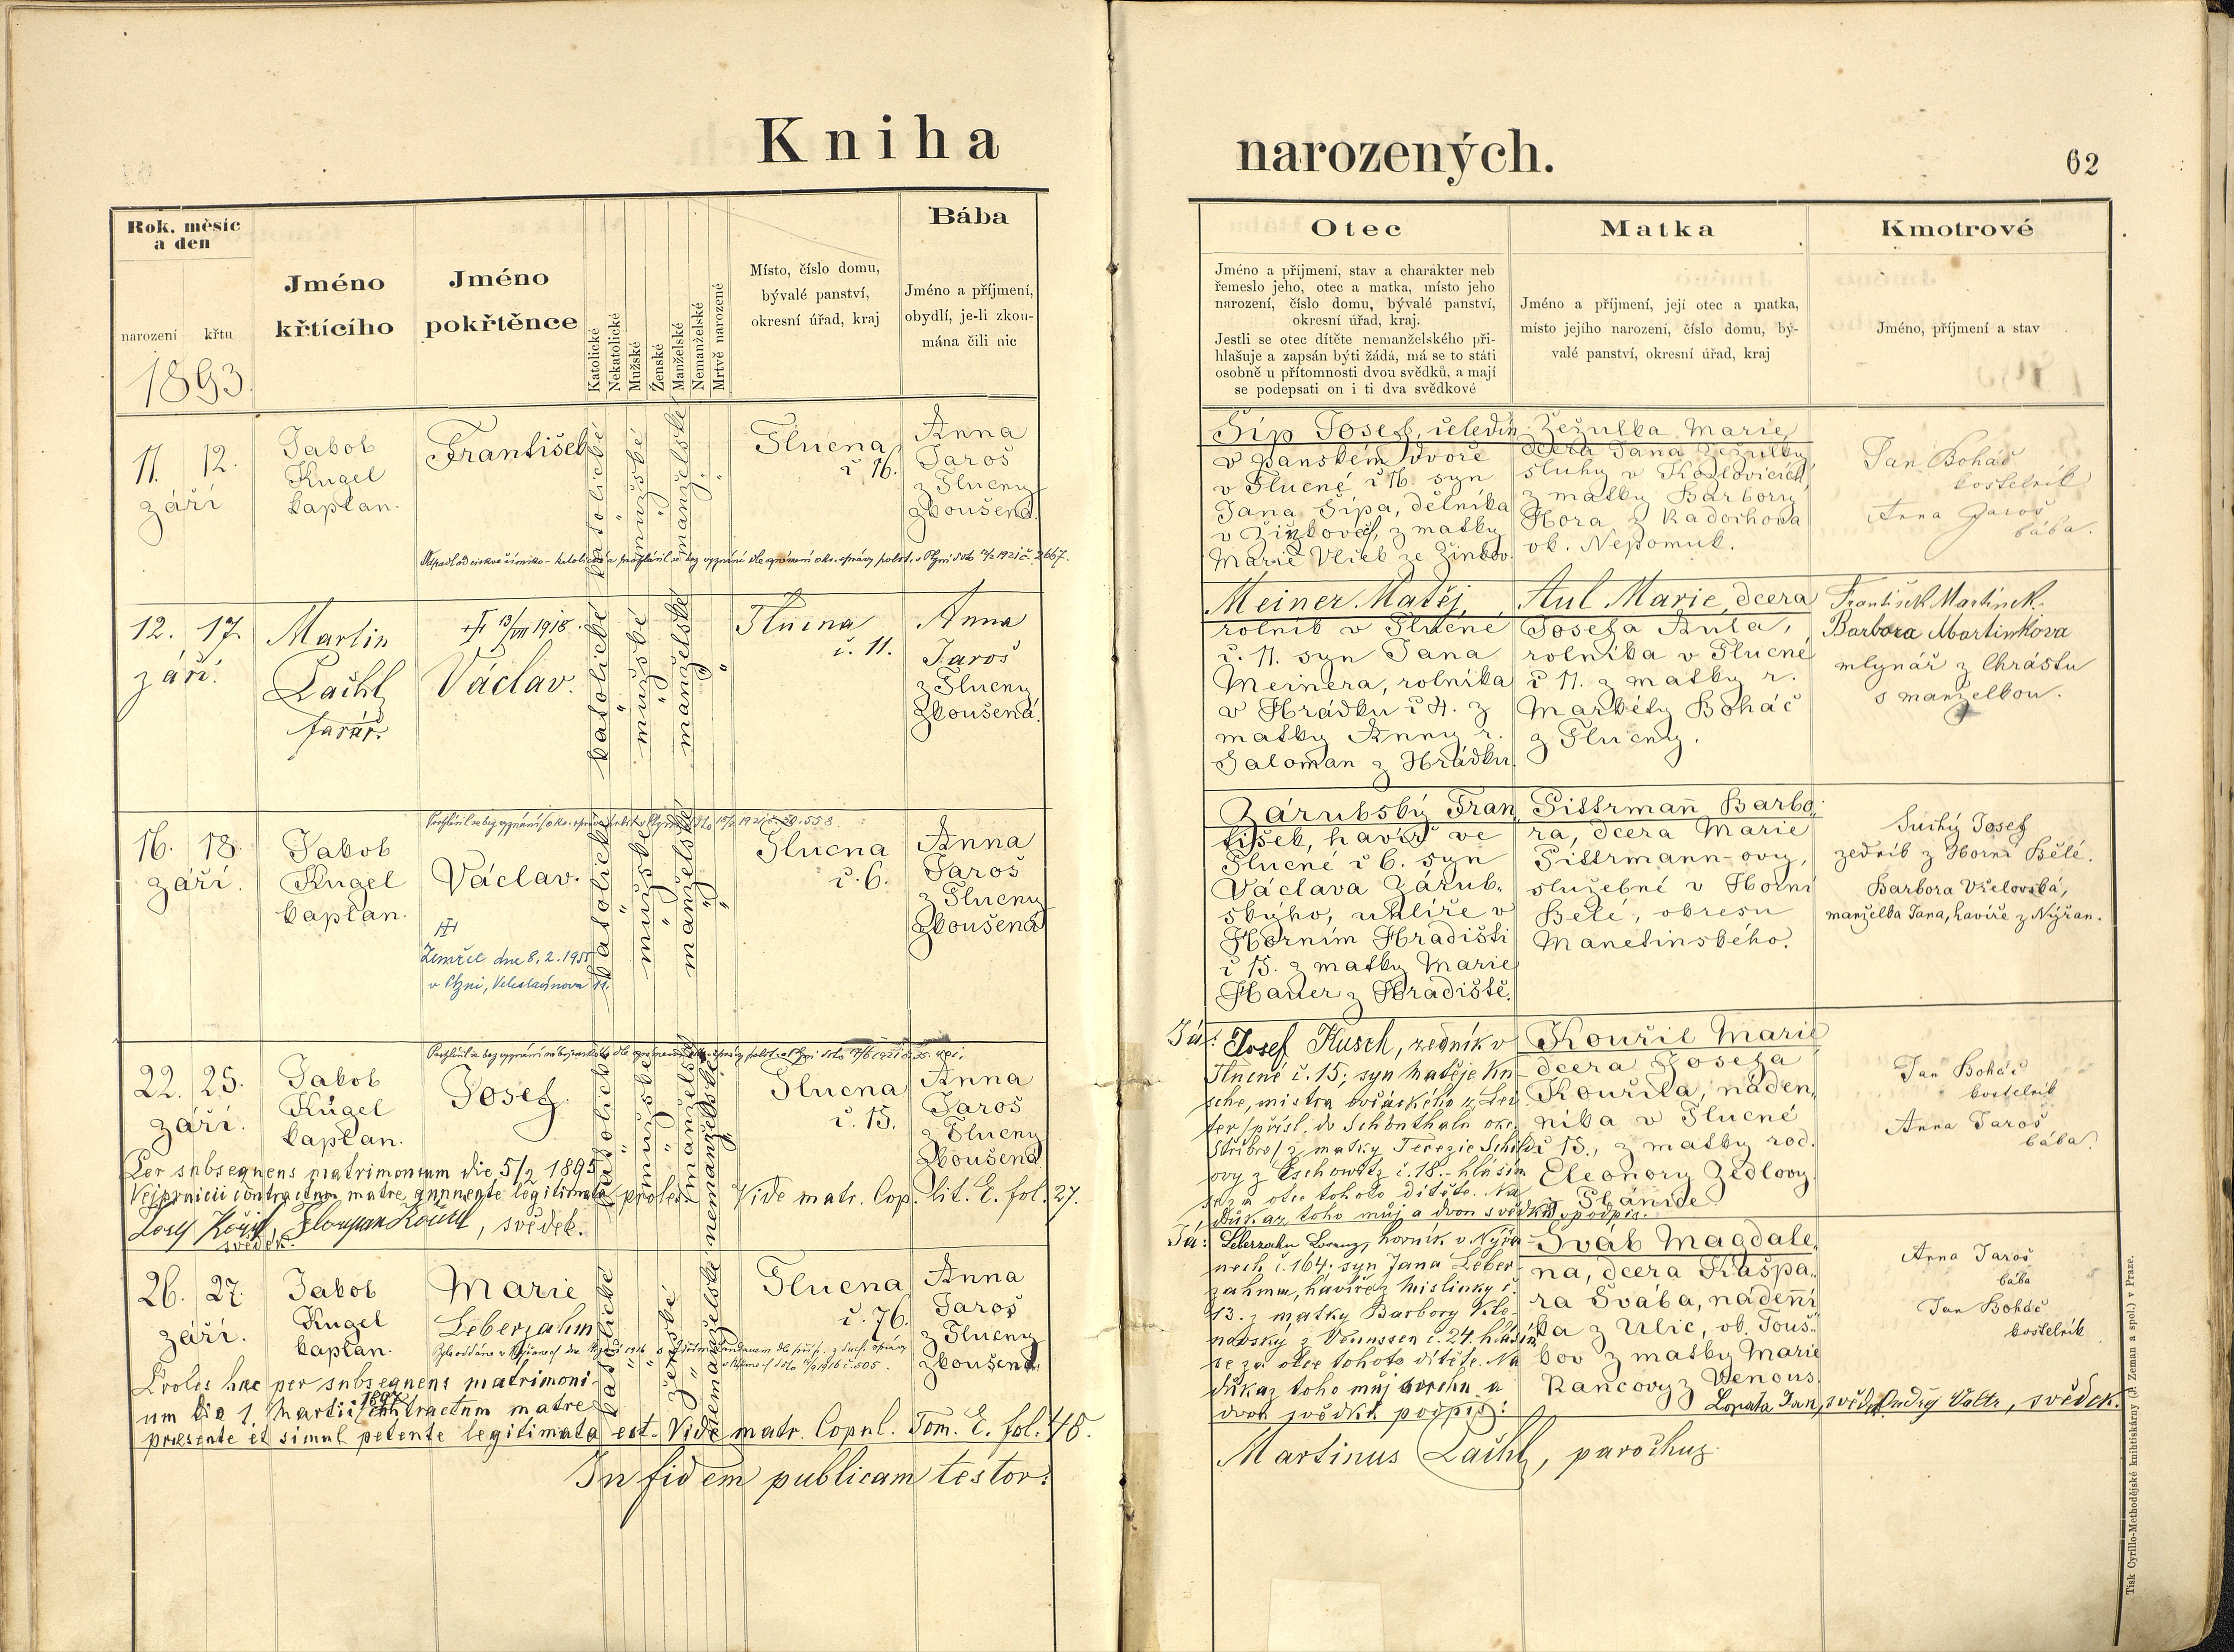 Kniha narozených.
62
Rok, měsíc
a den
narození
křtu
1893.
Jméno
křtícího
Jméno
pokřtěnce
Katolické
Nekatolické
Mužské
Ženské
Manželské
Nemanželské
Mrtvě narozené
Místo, číslo domu,
bývalé panství,
okresní úřad, kraj
Bába
Jméno a příjmení,
obydlí, je-li zkou-
mána čili nic
Otec
Jméno a příjmení, stav a charakter neb
řemeslo jeho, otec a matka, místo jeho
narození, číslo domu, bývalé panství,
okresní úřad, kraj.
Jestli se otec dítěte nemanželského při-
hlašuje a zapsán býti žádá, má se to státi
osobně u přítomnosti dvou svědků, a mají
se podepsati on i ti dva svědkové
Matka
Jméno a příjmení, její otec a matka,
místo jejího narození, číslo domu, bý-
valé panství, okresní úřad, kraj
Kmotrové
Jméno, příjmení a stav
11. 12.
září
Jakob
Kugel
kaplan.
František
katolické
mužské
manželské
Tlucna
č 16.
Anna
Jaroš
z Tlucny
zkoušená.
Šíp Josef, čeledín
v panském dvoře
v Tlucné č 16. syn
Jana Šípa, dělníka
v Žinkovech, z matky
Marie Vlček ze Žinkov.
Žežulka Marie
dcera Jana Žežulky
sluhy v Kozlovicích,
z matky Barbory
Hora z Radochova
ok. Nepomuk.
Jan Boháč
kostelník
Anna Jaroš
bába.
12. 17.
září.
Martin
Lachl
farář.
13/VIII 1918.
Václav.
katolické
mužské
manželské
Tlucna
č. 11.
Anna
Jaroš
z Tlucny
zkoušená.
Meiner Matěj,
rolník v Tlucné
č. 11. syn Jana
Meinera, rolníka
v Hrádku č 4. z
matky Anny r.
Saloman z Hrádku.
Aul Marie, dcera
Josefa Aula,
rolníka v Tlucné
č 11. z matky r.
Markéty Boháč
z Tlucny.
František Martínek.
Barbora Martinkova
mlynář z Chrástu
s manželkou.
16. 18.
září.
Jakob
Kugel
kaplan.
Václav.
Zemřel dne 8. 2. 1955
v Plzni, Veleslavínova 11.
katolické
mužské
manželské
Tlucna
č. 6.
Anna
Jaroš
z Tlucny
zkoušená
Zárubský Fran
tišek, havíř ve
Tlucné č 6. syn
Václava Zárub.
ského, uhlíře v
Horním Hradišti
č 15. z matky Marie
Hauer z Hradiště.
Pittrmann Barbo.
ra, dcera Marie
Pittrmann-ovy,
služebné v Horní
Bělé, okresu
Manětínského.
Suchý Josef
zedník z Horní Bělé.
Barbora Včelovská,
manželka Jana, havíře z Nýřan.
22. 25.
září.
Jakob
Kugel
kaplan.
Josef.
katolické
mužské
manželské
nemanželské
Tlucna
č. 15.
Anna
Jaroš
z Tlucny
zkoušená
Per subsequens matrimonium die 5/2 1895
Vejprnicii contractum matre annuente legitimata proles. Vide matr. Cop. lit. E. fol. 27.
svědek.
Florian Kouřil, svědek.
Já: Josef Kusch, zedník v
Tlucné č. 15; syn Matěje Ku-
sche, mistra ovčáckého z
přísl. do Schönthalu okr.
Stříbro/ z matky Terezie
č. 18.- hlásím
se za otce tohoto dítěte. Na
důkaz toho můj a dvou svědků podpis.
Kouřil Marie
dcera Josefa
Kouřila, náden.
níka v Tlucné
č 15., z matky rod.
Eleonory Zedlovy
z Plánice.
Jan Boháč
kostelník
Anna Jaroš
bába.
26. 27.
září.
Jakob
Kugel
kaplan.
Marie
Leberzahm
katolické
ženské
nemanželské
Tlucna
č. 76.
Anna
Jaroš
z Tlucny
zkoušená.
Proles haec per subsequens matrimoni-
um die 1. Martii 1897 contractum matre
praesente et simul petente legitimata est. Vide matr. Copul. Tom. E. fol. 48.
Já: Leberzahm Lorenz, horník v Nýřa-
nech č. 164. syn Jana Leber-
zahma, havíře z Mislinky č.
13. z matky Barbory
č. 24. hlásím
se za otce tohoto dítěte. Na
důkaz toho můj a
dvou svědků podpis:
Šváb Magdale.
na, dcera Kašpa.
ra Švába, nádenní
ka z Ulic, ok. Touš.
kov z matky Marie
Rancovy z Wenous
Anna Jaroš
bába
Jan Boháč
kostelník
Lopata Jan, svědek. Ondřej Valtr, svědek.
In fidem publicam testor:
Martinus Lachl, parochus
Tisk Cyrillo-Methodějské knihtiskárny (J. Zeman a spol.) v Praze.